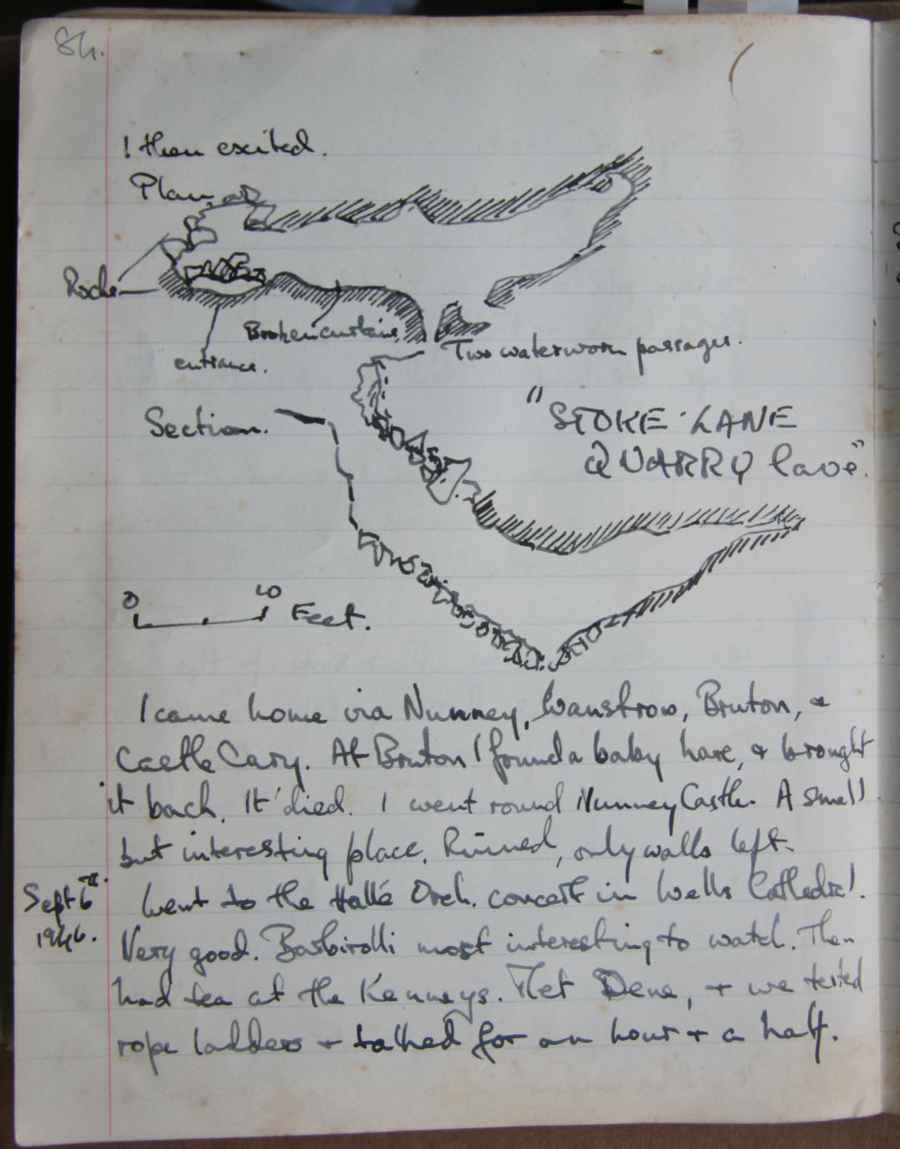 84.
I then exited.
Plan
Rocks
Broken curtains
entrance.
Two waterworn passages.
Section.
"STOKE LANE
QUARRY Cave".
0 10 Feet.
I came home via Nunney, Wanstrow, Bruton, &
Castle Cary. At Bruton I found a baby hare, & brought
it back. It died. I went round Nunney Castle. A small
but interesting place. Ruined, only walls left.
Sept 6th.
1946.
Went to the Hallé Orch. concert in Wells Cathedral.
Very good. Barbirolli most interesting to watch. Then
had tea at the Kenneys. Met Dene, + we tested
rope ladders + talked for an hour + a half.